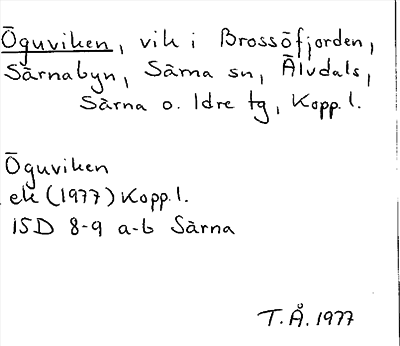 Öguviken, vik i Brossöfjorden,
Särnabyn, Särna sn, Älvdals,
Särna o. Idre tg, Kopp. l.
Öguviken
ek (1977) Kopp. l.
15D 8-9 a-b Särna
T.Å. 1977